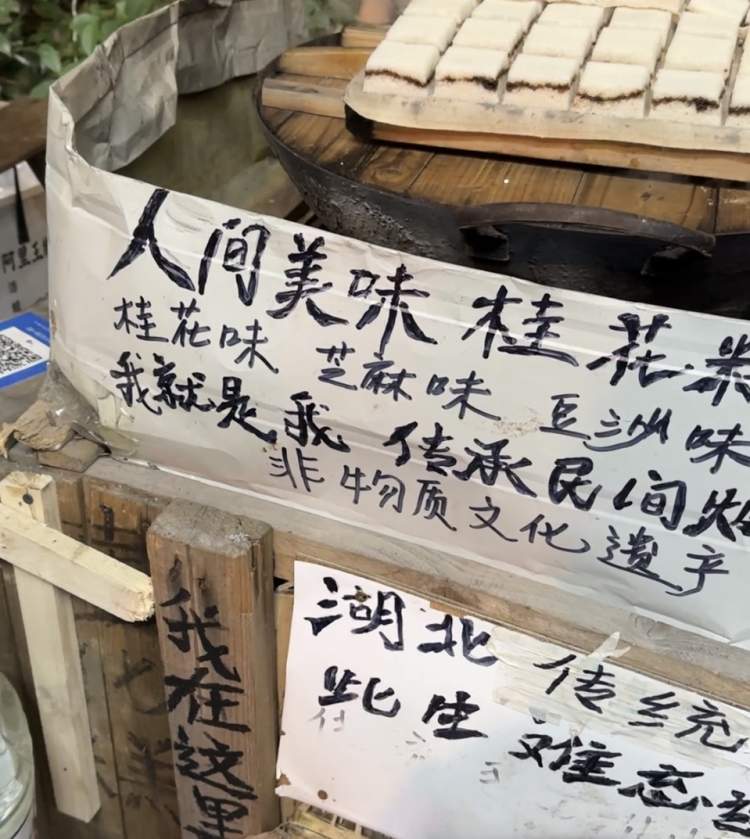 人间美味 桂花
桂花味 芝麻味 豆沙味
我就是我 传承民间
非物质文化遗产
湖北 传统
此生难忘
我在这里